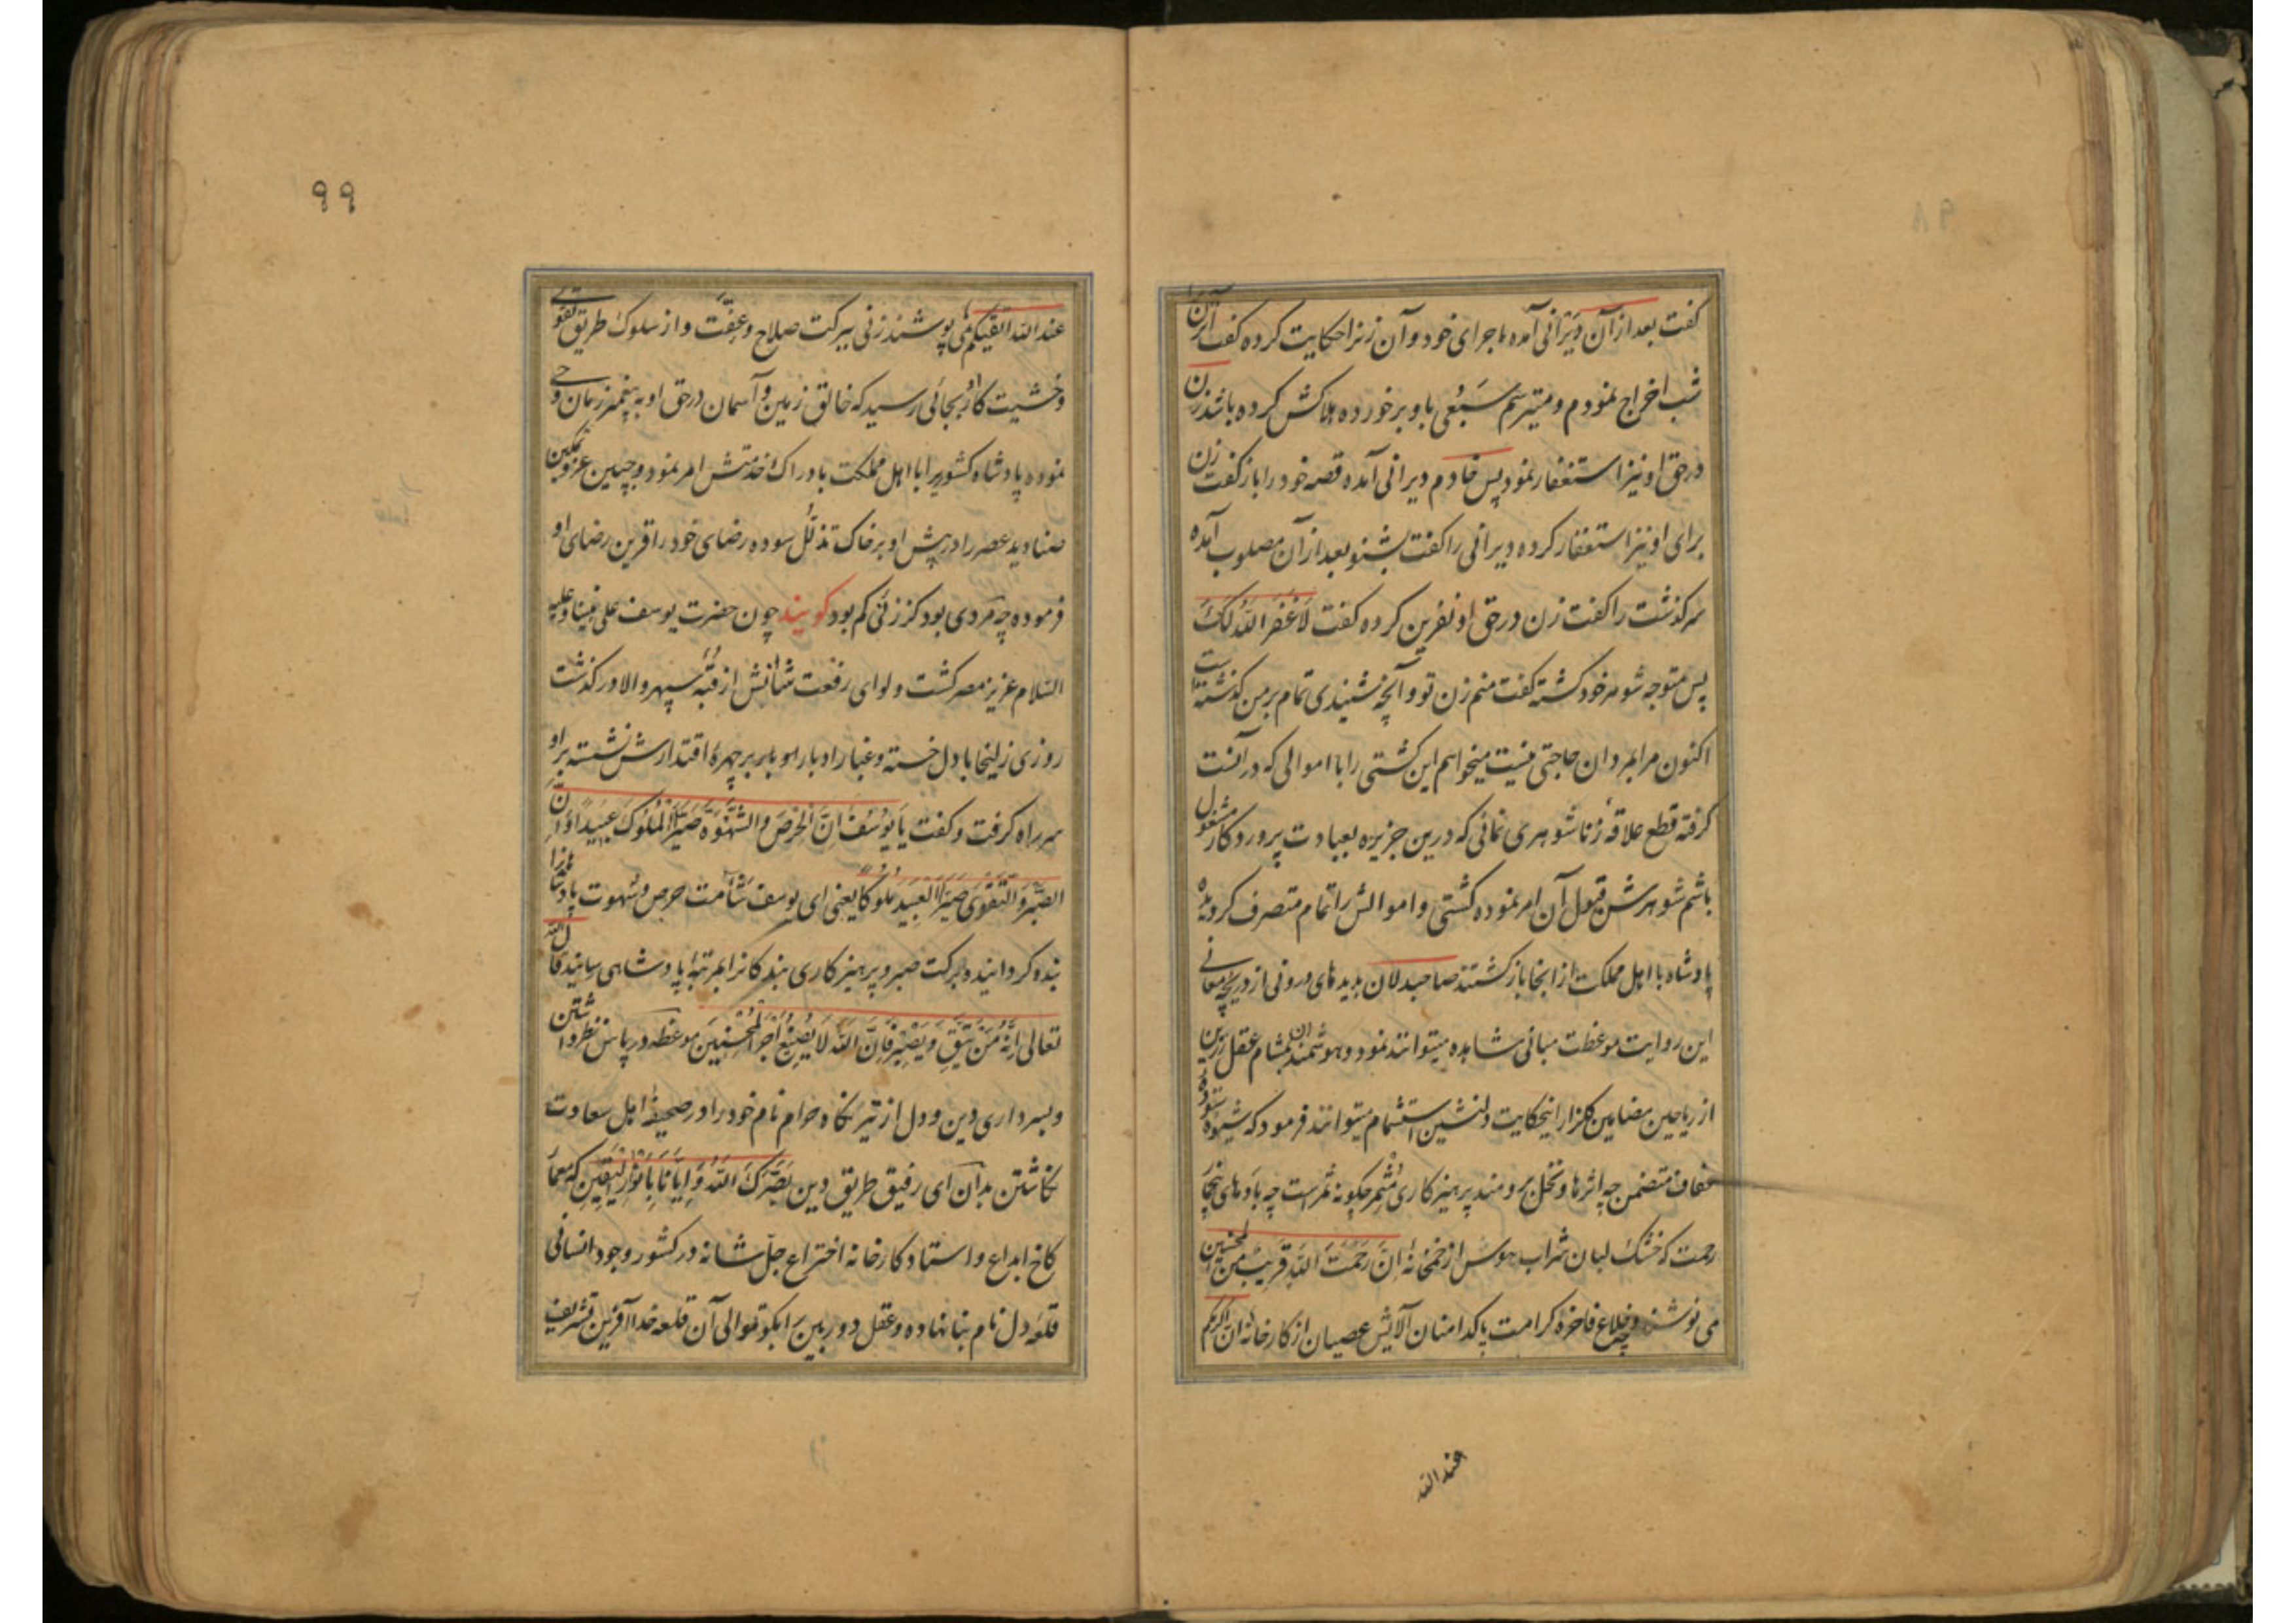 گفت بعد از آن دیرانی آمده ماجرای خود و آن زنرا حکایت کرده گفت آن زنرا
شب اخراج نمودم و میترسم سبعی باو برخورده هلاکش کرده باشد زن
در حق او نیز استغفار نمود پس خادم دیرانی آمده قصه خود را باز گفت زن
برای او نیز استغفار کرده دیرانی را گفت بشنو بعد از آن مصلوب آمده
سرگذشت را گفت زن در حق او نفرین کرده گفت لا غفر الله لک
پس متوجه شوهر خود گشته گفت منم زن تو و آنچه شنیدی تمام بر من گذشته است
اکنون مرا بمردان حاجتی نیست میخواهم این کشتی را با اموالی که در آنست
گرفته قطع علاقه زناشوهری نمائی که درین جزیره بعبادت پروردگار مشغول
باشم شوهرش قبول آن امر نموده کشتی و اموالش را تمام متصرف گردیده
پادشاه با اهل مملکت از انجا بازگشتند صاحبدلان بدیدهای درونی از دریچه معانی
این روایت موعظت مبانی مشاهده میتوانند نمود و هوشمندان بمشام عقل رزین
از ریاحین مضامین گلزار اینحکایت دلنشین استشمام میتوانند فرمود که شیوه ستوده
عفاف متضمن چه اثرها و نخل برومند پرهیزکاری مثمر چگونه ثمر است چه بادهای
رحمت که خشک لبان شراب هوس از خمخانه ان رحمت الله قریب من المحسنین
می نوشند و چه خلاع فاخره کرامت پاکدامنان آلایش عصیان از کارخانه ان اکرمکم
عند الله
٩٩
عند الله اتقیکم می پوشند زنی ببرکت صلاح و عفت و از سلوک طریق تقوی
و خشیت کار او بجائی رسید که خالق زمین و آسمان در حق او به پیغمبر زمان وحی
نموده پادشاه کشوریرا با اهل مملکت بادراک خدمتش امر نمود و چنین عز و تمکین
صنادید عصر را در پیش او بر خاک تذلل سوده رضای خود را قرین رضای او
فرموده چه مردی بود کز زنی کم بود گویند چون حضرت یوسف علی نبینا و علیه
السلام عزیز مصر گشت و لوای رفعت شانش از قبه سپهر والا در گذشت
روزی زلیخا با دل خسته و غبار ادبار بر چهرۀ اقتدارش نشسته بر او
سر راه گرفت و گفت یا یوسف ان الحرص و الشهوة صیرا الملوک عبیدا و ان
الصبر و التقوی صیرا العبید ملوکا یعنی ای یوسف شأمت حرص و شهوت پادشاهانرا
بنده گردانیده و برکت صبر و پرهیزکاری بندگانرا بمرتبۀ پادشاهی رسانید قال الله
تعالی انه من یتق و یصبر فان الله لا یضیع اجر المحسنین موعظه در پاس نظر داشتن
و بسرداری دین و دل از تیر نگاه حرام نام خود را در صحیفه اهل سعادت
نگاشتن بدان ای رفیق طریق دین بصرک الله و ایانا بانوار الیقین که معمار
کاخ ابداع و استاد کارخانه اختراع جل شانه در کشور وجود انسانی
قلعه دل نام بنا نهاده و عقل دوربین را بکوتوالی آن قلعه خدا آفرین تشریف